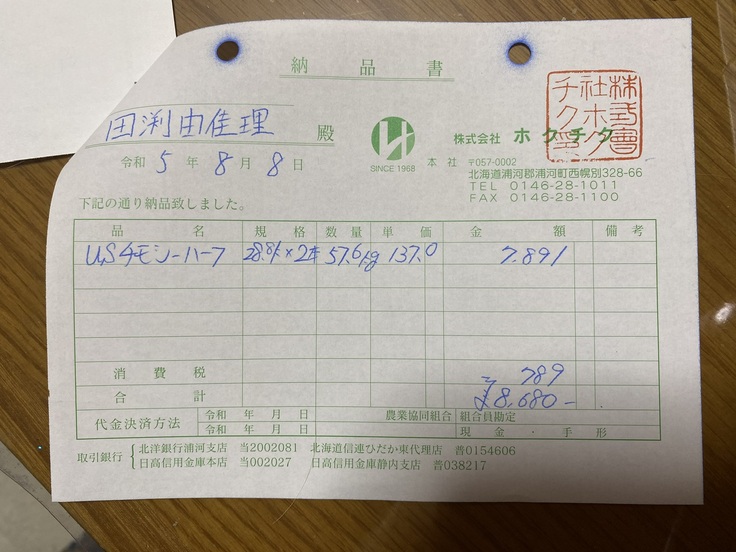 納品書
田渕由佳理 殿
令和 5 年 8 月 8 日
H
SINCE 1968
株式会社 ホクチク
本社 〒057-0002
北海道浦河郡浦河町西幌別328-66
TEL 0146-28-1011
FAX 0146-28-1100
下記の通り納品致しました。
品名 規格 数量 単価 金額 備考
USチモシーハーフ 28.8k×2本 57.6kg 137.0 7.891
消費税 789
合計 ¥8,680-
代金決済方法 令和 年 月 日 農業協同組合 組合員勘定
令和 年 月 日 現金・手形
取引銀行 北洋銀行浦河支店 当2002081 北海道信連ひだか東代理店 普0154606
日高信用金庫本店 当002027 日高信用金庫静内支店 普038217